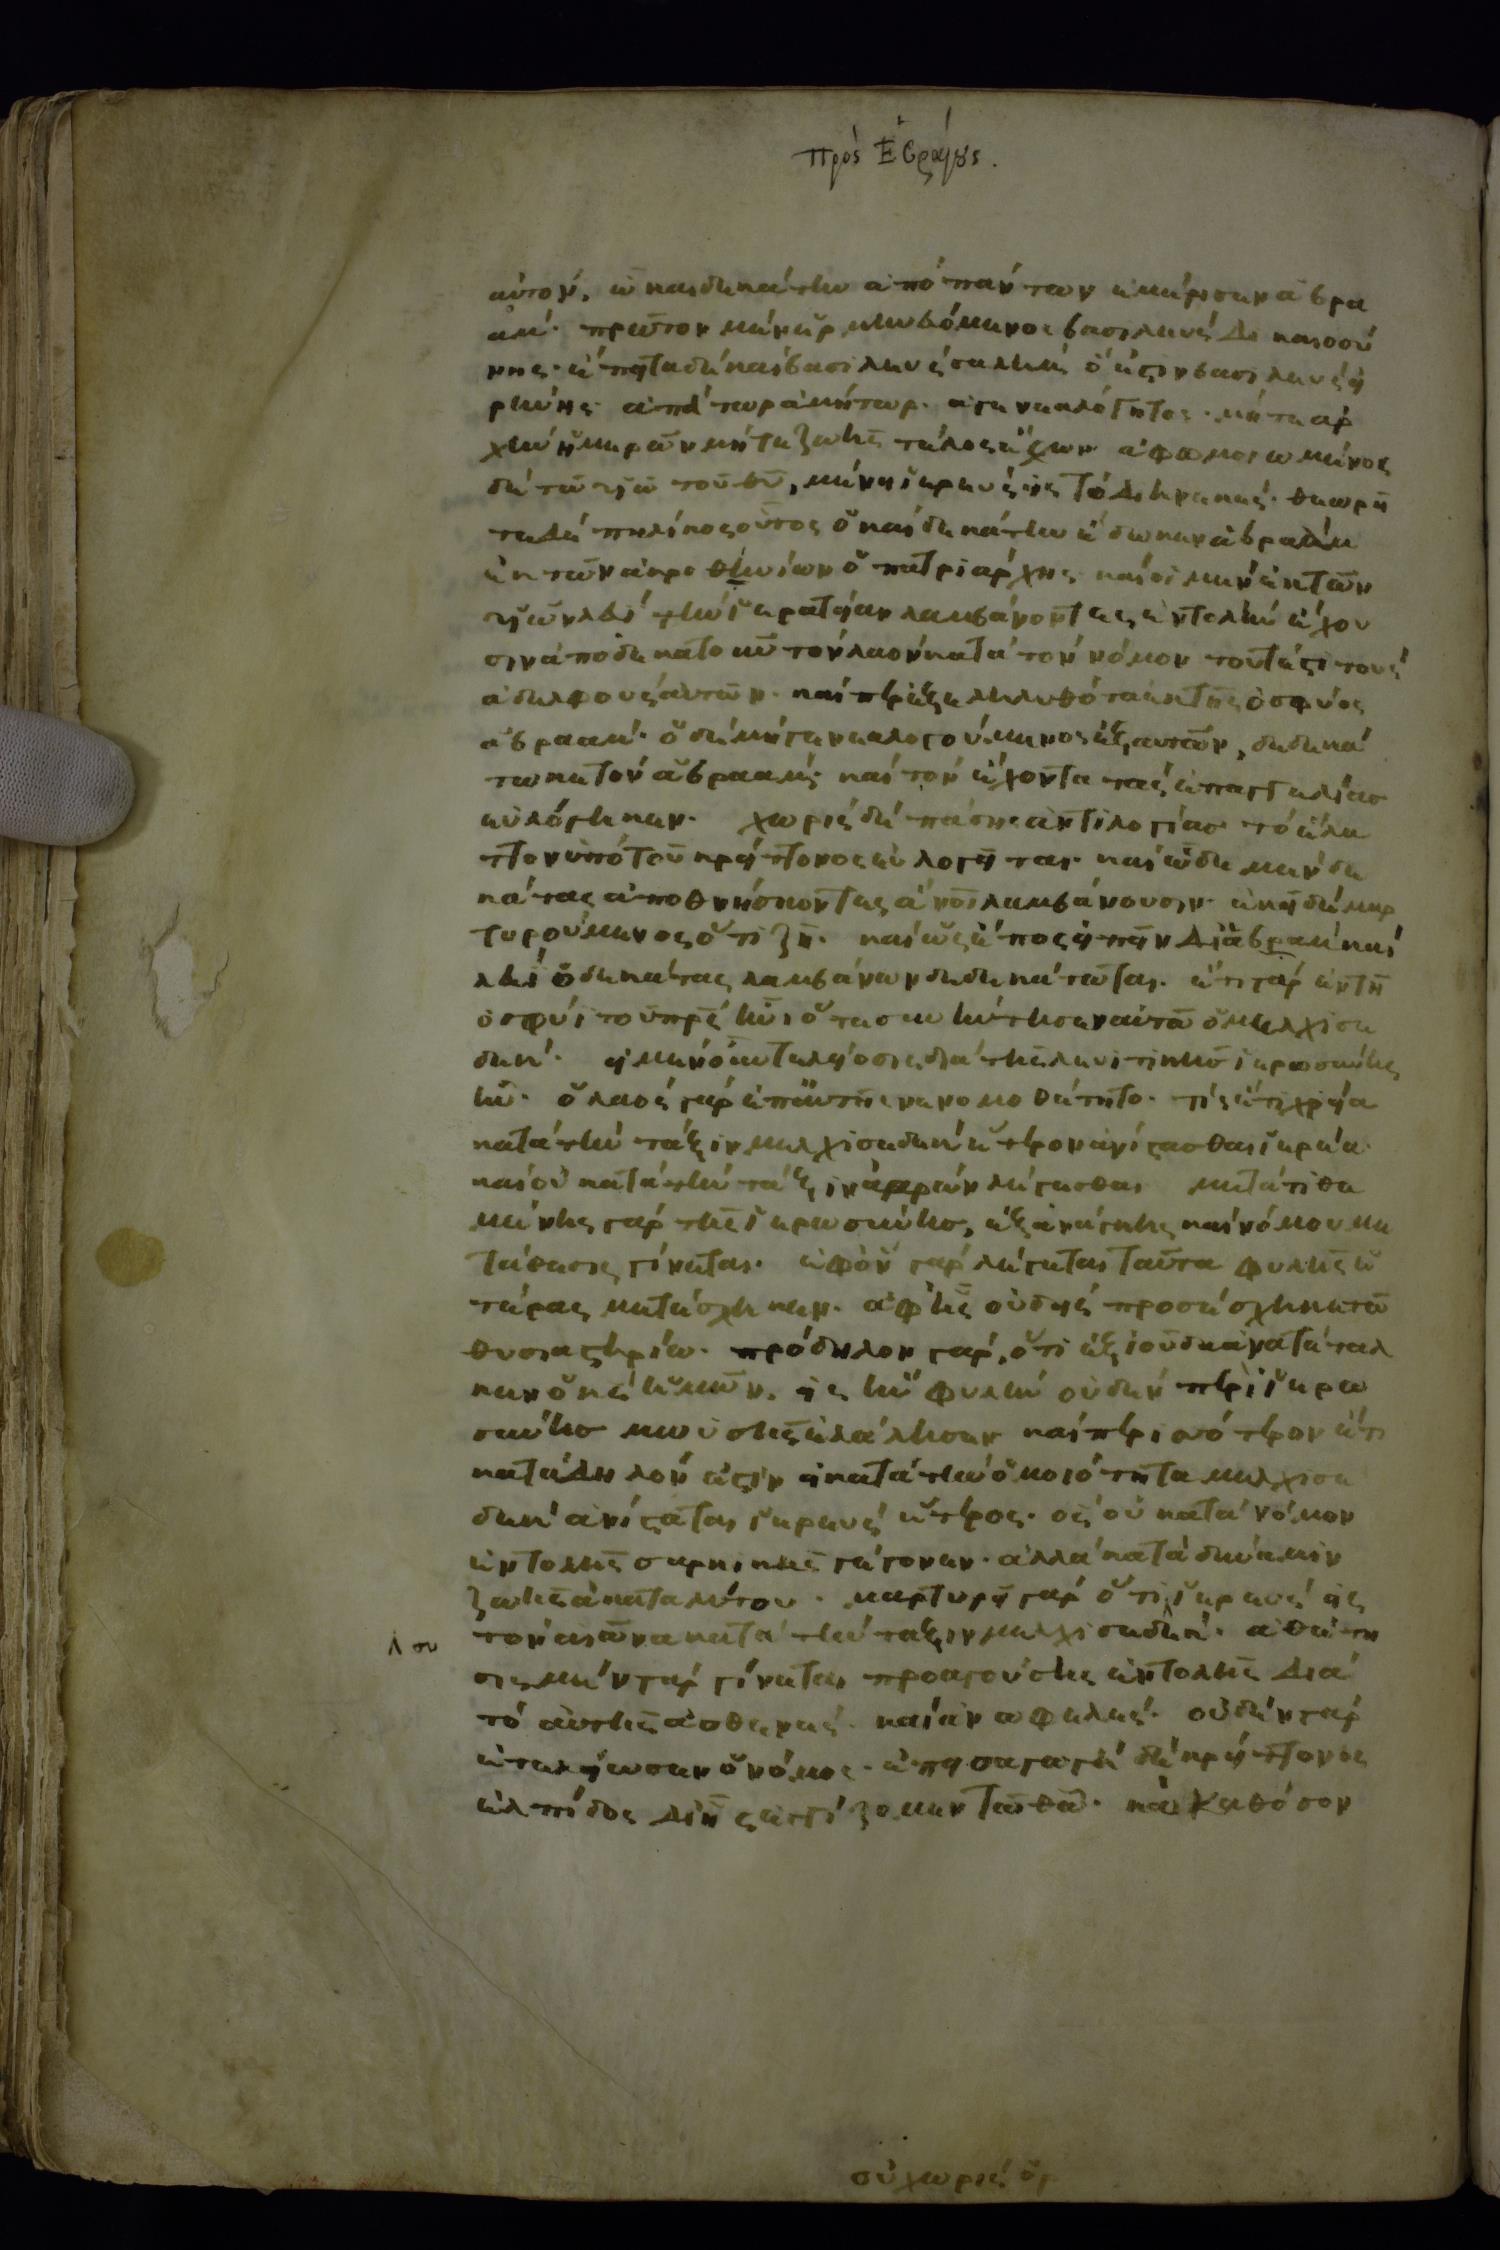 πρὸς Ἑβραίους.
αὐτόν, ὧ καὶ δεκάτην ἀπὸ πάντων ἐμέρισεν ἀβρα
ἀμ· πρῶτον μὲν ἑρμηνευόμενος βασιλεὺς δικαιοσύ
νης· ἔπειτα δὲ καὶ βασιλεὺς σαλήμ, ὅ ἐστιν βασιλεὺς εἰ
ρήνης· ἀπάτωρ ἀμήτωρ. ἀγενεαλόγητος. μήτε ἀρ
χὴν ἡμερῶν μήτε ζωῆς τέλος ἔχων ἀφωμοιωμένος
δὲ τῶ υἱῶ τοῦ θυ, μένει ἱερεὺς εἰς τὸ διηνεκές. θεωρεῖ
τε δὲ πηλίκος οὗτος ὃ καὶ δεκάτην ἔδωκεν ἀβραὰμ
ἐκ τῶν ἀκροθινίων ὁ πατριάρχης καὶ οἱ μὲν ἐκ τῶν
υἱῶν λευὶ τὴν ἱερατείαν λαμβάνοντες ἐντολὴν ἔχου
σιν ἀποδεκατοῦν τὸν λαὸν κατὰ τὸν νόμον τουτέστι τοὺς
ἀδελφοὺς αὐτῶν. καίπερ ἐξεληλυθότα ἐκ τῆς ὀσφύος
ἀβραάμ· ὁ δὲ μὴ γενεαλογούμενος ἐξ αὐτῶν, δεδεκά
τωκε τὸν ἀβραάμ· καὶ τὸν ἔχοντα τὰς ἐπαγγελίας
εὐλόγηκεν. χωρὶς δὲ πάσης ἀντιλογίας τὸ ἔλα
ττον ὑπὸ τοῦ κρείττονος εὐλογεῖται. καὶ ὧδε μὲν δε
κάτας ἀποθνήσκοντες ἄνοι λαμβάνουσιν. ἐκεῖ δὲ μαρ
τυρούμενος ὅτι ζῆ. καὶ ὡς ἔπος εἰπεῖν διὰ ἀβραὰμ καὶ
λευὶ ὁ δεκάτας λαμβάνων δεδεκάτωται. ἔτι γὰρ ἐν τῆ
ὀσφύι τοῦ πρς ἦν ὅτε συνήντησεν αὐτῶ ὁ μελχισε
δέκ. εἰ μὲν οὖν τελείωσις διὰ τῆς λευιτικῆς ἱερωσύνης
ἦν. ὁ λαὸς γὰρ ἐπ' αὐτῆς νενομοθέτητο. τίς ἔτι χρεία
κατὰ τὴν τάξιν μελχισεδὲκ ἕτερον ἀνίστασθαι ἱερέα
καὶ οὐ κατὰ τὴν τάξιν ἀαρὼν λέγεσθαι μετατιθε
μένης γὰρ τῆς ἱερωσύνης, ἐξ ἀνάγκης καὶ νόμου με
τάθεσις γίνεται. ἐφ' ὃν γὰρ λέγεται ταῦτα φυλῆς ἑ
τέρας μετέσχηκεν. ἀφ' ἧς οὐδεὶς προσέσχηκε τῶ
θυσιαστηρίω. πρόδηλον γάρ, ὅτι ἐξ ἰούδα ἀνατέταλ
κεν ὁ κς ἡμῶν, εἰς ἣν φυλὴν οὐδὲν περὶ ἱερω
σύνης μωυσῆς ἐλάλησεν καὶ περισσότερον ἔτι
κατάδηλόν ἐστιν εἰ κατὰ τὴν ὁμοιότητα μελχισε
δὲκ ἀνίσταται ἱερεὺς ἕτερος. ὃς οὐ κατὰ νόμον
ἐντολῆς σαρκικῆς γέγονεν. ἀλλὰ κατὰ δύναμιν
ζωῆς ἀκαταλύτου. μαρτυρεῖ γὰρ ὅτι ἱερεὺς εἰς
τὸν αἰῶνα κατὰ τὴν τάξιν μελχισεδέκ. ἀθέτη
σις μὲν γὰρ γίνεται προαγούσης ἐντολῆς διὰ
τὸ αὐτῆς ἀσθενές. καὶ ἀνωφελές. οὐδὲν γὰρ
ἐτελείωσεν ὁ νόμος. ἐπεισαγωγὴ δὲ κρείττονος
ἐλπίδος δι' ἧς ἐγγίζομεν τῶ θῶ. καὶ καθόσον
συ
οὐ χωρὶς ὁρ